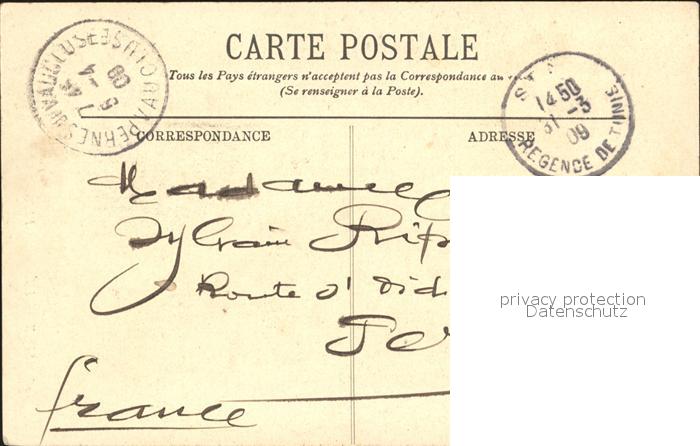 CARTE POSTALE
Tous les Pays étrangers n'acceptent pas la Correspondance au
(Se renseigner à la Poste).
CORRESPONDANCE
ADRESSE
PERNES VAUCLUSE
5 - 4
09
14 50
31 - 3
09
REGENCE DE TUNIS
Madame
Sylvain Rip
Route d'
Per
France
privacy protection
Datenschutz